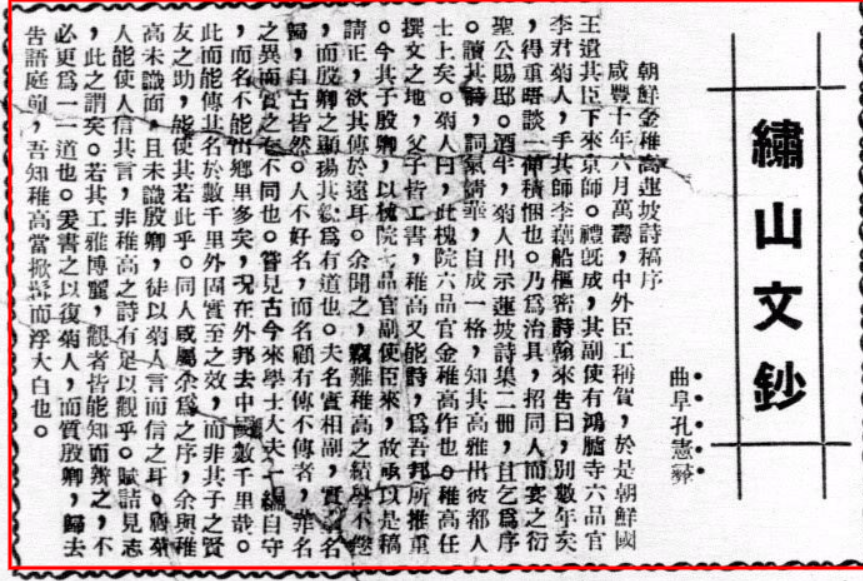 繡山文鈔
曲阜孔憲彝
朝鮮金稚高蓮坡詩稿序
咸豐十年六月萬壽,中外臣工稱賀,於是朝鮮國
王遺其臣下來京師。禮既成,其副使有鴻臚寺六品官
李君菊人,手其師李藕船樞密詩翰來告曰,別數年矣
,得重晤談一傾積悃也。乃爲治具,招同人而宴之衍
聖公賜邸。酒半,菊人出示蓮坡詩集二冊,且乞爲序
。讀其詩,詞氣清華,自成一格,知其高雅出彼都人
士上矣。菊人曰,此槐院六品官金稚高作也。稚高任
撰文之地,父子皆工書,稚高又能詩,爲吾邦所推重
。今其子殷卿,以槐院七品官副使臣來,故亟以是稿
請正,欲其傳於遠耳。余聞之,竊難稚高之績學不倦
,而殷卿之顯揚其親爲有道也。夫名實相副,實至名
歸,自古皆然。人不好名,而名顧有傳不傳者,非名
之異而實之有不同也。嘗見古今來學士大夫一編自守
,而名不能出鄉里多矣,況在外邦去中國數千里哉。
此而能傳其名於數千里外固實至之效,而非其子之賢
友之助,能使其若此乎。同人咸屬余爲之序,余與稚
高未識面,且未識殷卿,徒以菊人言而信之耳。顧菊
人能使人信其言,非稚高之詩有足以觀乎。賦詰見志
,此之謂矣。若其工雅博麗,觀者皆能知而辨之,不
必更爲一一道也。爰書之以復菊人,而質殷卿,歸去
告語庭前,吾知稚高當掀髯而浮大白也。